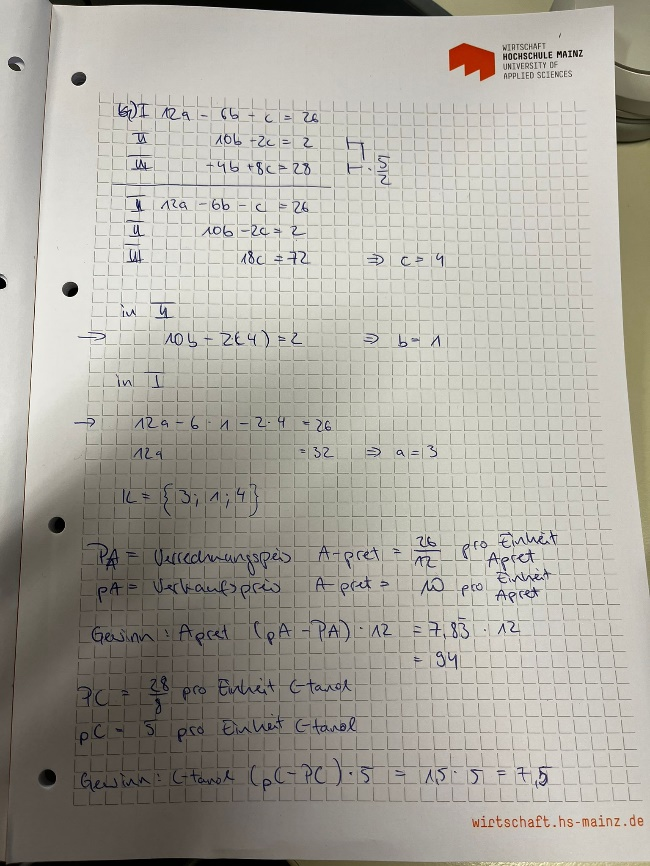 WIRTSCHAFT
HOCHSCHULE MAINZ
UNIVERSITY OF
APPLIED SCIENCES
I 12a - 6b - c = 26
II 10b - 2c = 2
III -4b + 8c = 28 · 5/2
I 12a - 6b - c = 26
II 10b - 2c = 2
III 18c = 72 ⇒ c = 4
in II
→ 10b - 2(4) = 2 ⇒ b = 1
in I
→ 12a - 6 · 1 - 2 · 4 = 26
12a = 32 ⇒ a = 3
L = {3; 1; 4}
PA = Verrechnungspreis A-pret = 26/12 pro Einheit Apret
pA = Verkaufspreis A-pret = 10 pro Einheit Apret
Gewinn: Apret (pA - PA) · 12 = 7,83 · 12
= 94
PC = 28/8 pro Einheit C-tanol
pC = 5 pro Einheit C-tanol
Gewinn: C-tanol (pC - PC) · 5 = 1,5 · 5 = 7,5
wirtschaft.hs-mainz.de